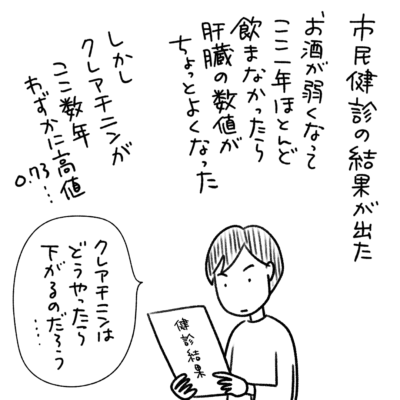 市民健診の結果が出た
お酒が弱くなって
ここ一年ほとんど
飲まなかったら
肝臓の数値が
ちょっとよくなった
しかし
クレアチニンが
ここ数年
わずかに高値
0.73…
クレアチニンは
どうやったら
下がるのだろう
……
健診結果